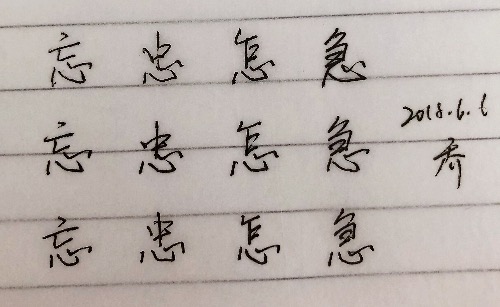 忘 忠 怎 急
2018.6.6
忘 忠 怎 急
乔
忘 忠 怎 急